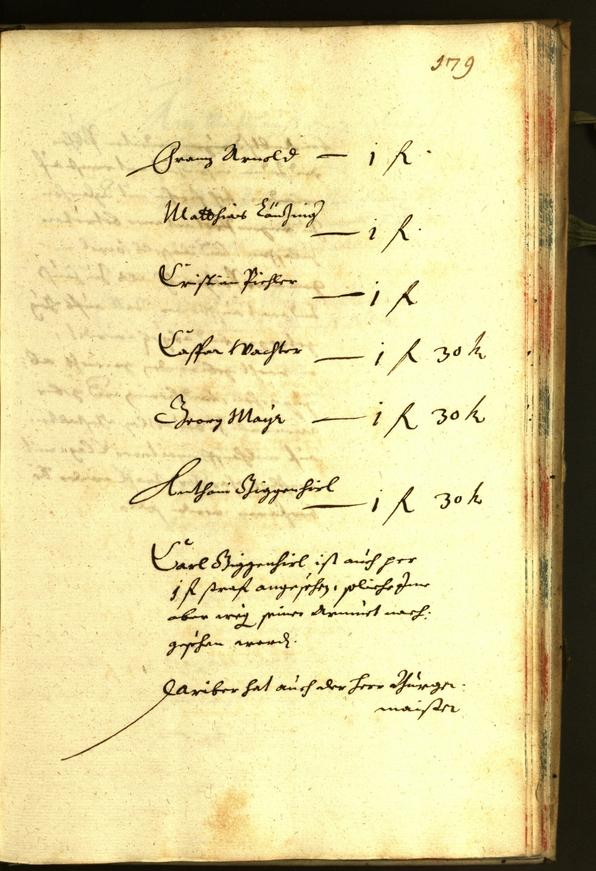 179
Franz Arnold — 1 fl.
Matthias — 1 fl.
Cristian Pichler — 1 fl
Casper Wachter — 1 fl 30 kr
Georg Mayr — 1 fl 30 kr
Anthoni Giggenhirl — 1 fl 30 kr
Carl Giggenhirl ist auch per
1 fl straf angesehen, solliche Ime
aber weg seiner Armuet nach-
gesehen word.
Dariber hat auch der herr Burger-
maister